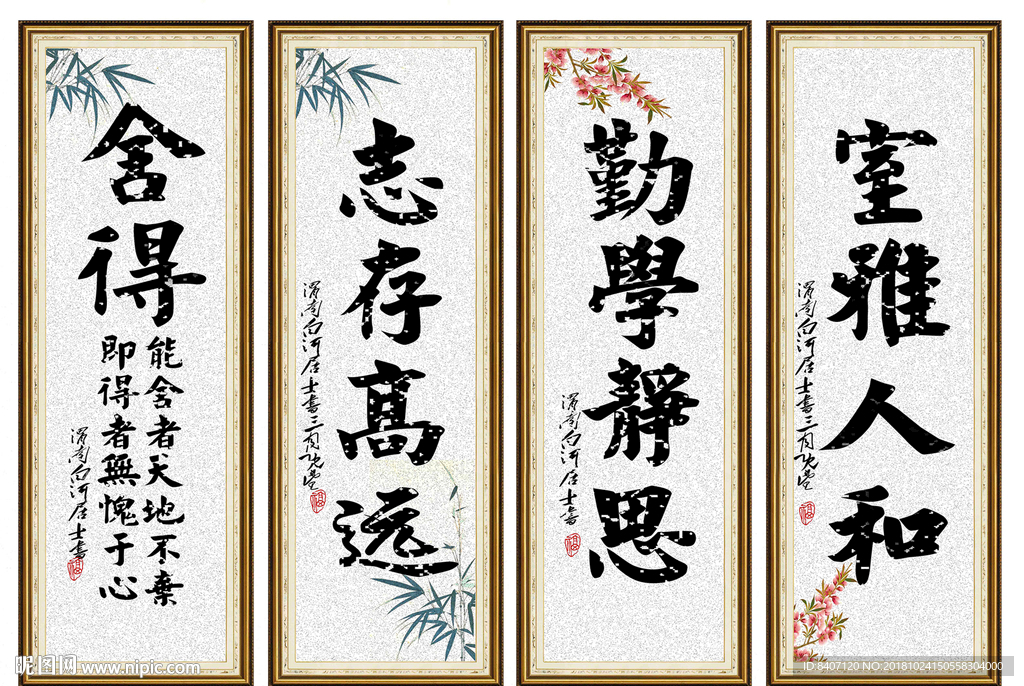 舍得
能舍者天地不棄
即得者無愧于心
渭南白河居士書
福
志存髙远
渭南白河居士書三
福
勤學靜思
渭南白河居士書
福
室雅人和
渭南白河居士書三
福
昵图网 www.nipic.com
ID:8407120 NO:20181024150558304000